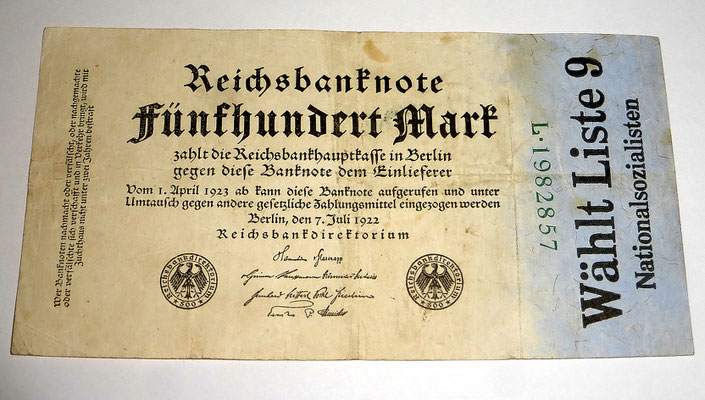 Wer Banknoten nachmacht oder verfälscht, oder nachgemachte
oder verfälschte sich verschafft und in Verkehr bringt, wird mit
Zuchthaus nicht unter zwei Jahren bestraft
Reichsbanknote
Fünfhundert Mark
zahlt die Reichsbankhauptkasse in Berlin
gegen diese Banknote dem Einlieferer
Vom 1. April 1923 ab kann diese Banknote aufgerufen und unter
Umtausch gegen andere gesetzliche Zahlungsmittel eingezogen werden
Berlin, den 7. Juli 1922
Reichsbankdirektorium
Reichsbankdirektorium
500
Reichsbankdirektorium
500
L·1982857
Wählt Liste 9
Nationalsozialisten